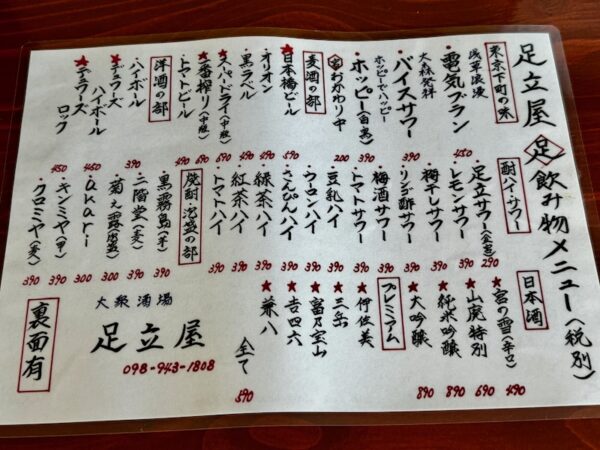 足立屋 足 飲み物メニュー(税別)
東京下町の味
浅草浪漫
・電気ブラン 450
大森発祥
・バイスサワー 390
ホッピーでハッピー
・ホッピー(白・黒) 390
おかわり中 200
麦酒の部
★日本橋ビール 590
・オリオン 490
・黒ラベル 490
★スーパードライ(中瓶) 690
★一番搾り(中瓶) 690
・トマトビール 490
洋酒の部
・ハイボール 390
★デュワーズハイボール 450
★デュワーズロック 450
酎ハイ・サワー
・足立サワー 290
・レモンサワー 390
・梅干しサワー 390
・リンゴ酢サワー 390
・梅酒サワー 390
・トマトサワー 390
・豆乳ハイ 390
・ウーロンハイ 390
・さんぴんハイ 390
・緑茶ハイ 390
・紅茶ハイ 390
・トマトハイ 390
焼酎・泡盛の部
・黒霧島(芋) 390
・二階堂(麦) 390
・菊之露 300
・akari 300
・キンミヤ(甲) 390
・クロミヤ(麦) 390
日本酒
★宮の雪(辛口) 490
★山廃特別 690
★純米吟醸 890
★大吟醸 890
プレミアム
★伊佐美
★三岳
★富乃宝山
★吉四六
★兼八
全て 590
大衆酒場
足立屋
098-943-1808
裏面有